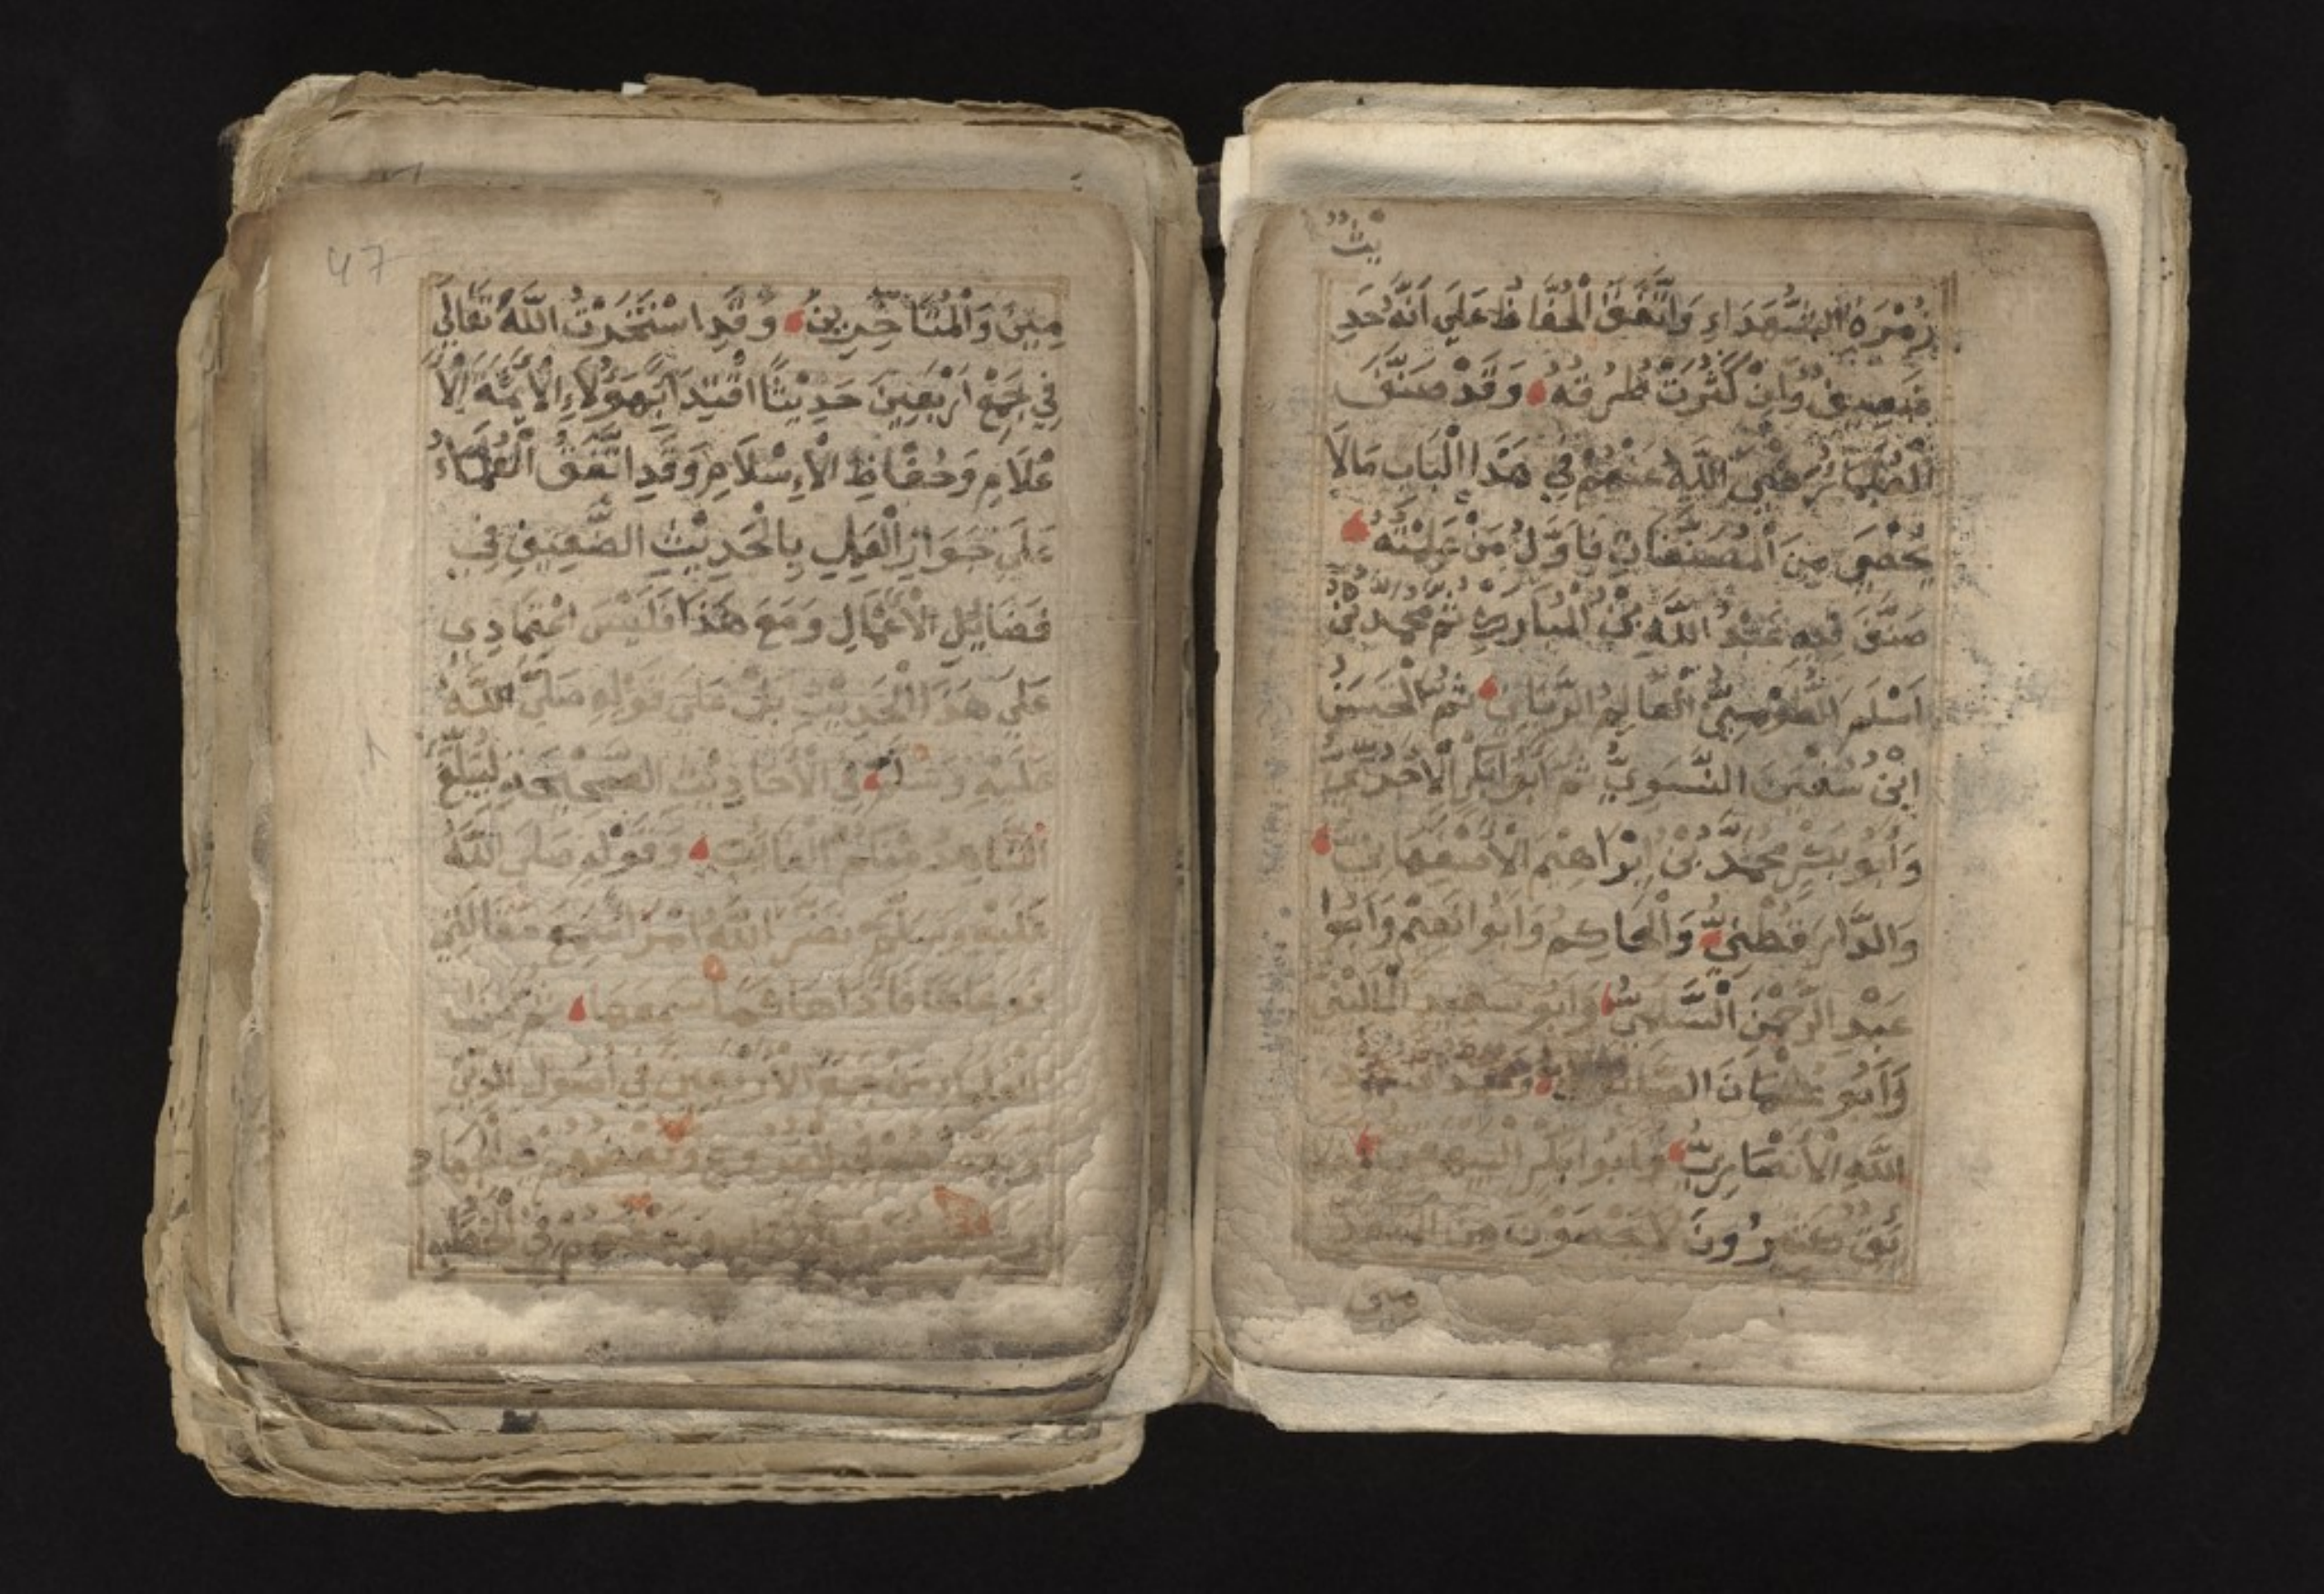 يث
زُمْرَةِ الشُّهَدَاءِ وَاتَّفَقَ الْحُفَّاظُ عَلَى اَنَّهُ حَدِ
ضَعِيفٌ وَاِنْ كَثُرَتْ طُرُقُهُ وَقَدْ صَنَّفَ
الْعُلَمَاءُ رَضِيَ اللَّهُ عَنْهُمْ فِي هَذَا الْبَابِ مَالَا
يُحْصَى مِنَ الْمُصَنَّفَاتِ فَاَوَّلُ مَنْ عَلِمْتُهُ
صَنَّفَ فِيهِ عَبْدُ اللَّهِ بْنُ الْمُبَارَكِ ثُمَّ مُحَمَّدُ بْنُ
اَسْلَمَ الطُّوْسِيُّ الْعَالِمُ الرَّبَّانِيُّ ثُمَّ الْحَسَنُ
ابْنُ سُفْيَنَ النَّسَوِيُّ ثُمَّ اَبُو ابَكْرٍ الْآجُرِّيُّ
وَاَبُو بَكْرٍ مُحَمَّدُ بْنُ اِبْرَاهِيمَ الْاَصْفَهَانِيُّ
وَالدَّارَ قُطْنِيُّ وَالْحَاكِمُ وَاَبُوا نَعِيْمٍ وَاَبُوا
عَبْدِ الرَّحْمَنِ السُّلَمِيُّ وَاَبُو سَعِيدٍ الْمَالِيْنِيُّ
وَاَبُو عُثْمَانَ الصَّابُونِيُّ وَعَبْدُ
اللَّهِ الْاَنْصَارِيُّ وَاَبُوا بَكْرٍ الْبَيْهَقِيُّ
ئِقُ كَثِيرُونَ لَا يُحْصَوْنَ مِنَ الْمُتَقَدِّ
مين
47
مِيْنَ وَالْمُتَاَخِّرِيْنَ وَقَدِ اسْتَخَرْتُ اللَّهَ تَعَالَى
فِي جَمْعِ اَرْبَعِيْنَ حَدِيْثًا اقْتِدَاءً بِهَؤُلَاءِ الْاَئِمَّةِ الْاَ
عْلَامِ وَحُفَّاظِ الْاِسْلَامِ وَقَدِ اتَّفَقَ الْعُلَمَاءُ
عَلَى جَوَازِ الْعَمَلِ بِالْحَدِيْثِ الضَّعِيفِ فِي
فَضَائِلِ الْاَعْمَالِ وَمَعَ هَذَا فَلَيْسَ اعْتِمَادِي
عَلَى هَذَا الْحَدِيْثِ بَلْ عَلَى قَوْلِهِ صَلَّى اللَّهُ
عَلَيْهِ وَسَلَّمَ فِي الْاَحَادِيْثِ الصَّحِيْحَةِ لِيُبَلِّغَ
الشَّاهِدُ مِنْكُمُ الْغَائِبَ وَقَوْلِهِ صَلَّى اللَّهُ
عَلَيْهِ وَسَلَّمَ نَضَّرَ اللَّهُ امْرَاً سَمِعَ مَقَالَتِي
فَوَعَاهَا فَاَدَّاهَا كَمَا سَمِعَهَا ثُمَّ مِنَ
الْعُلَمَاءِ مَنْ جَمَعَ الْاَرْبَعِيْنَ فِي اُصُولِ الدِّيْنِ
وَبَعْضُهُمْ فِي الْفُرُوعِ وَبَعْضُهُمْ فِي الْجِهَادِ
وَبَعْضُهُمْ فِي الْخُطَبِ